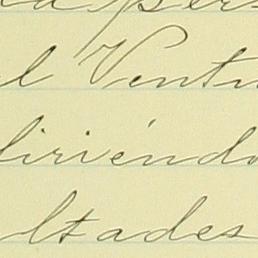 a pers
l Ventu
firiéndo
ltades